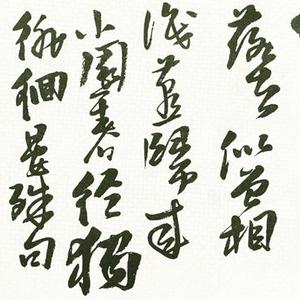 落去似曾相
識燕歸來
小園香徑獨
徘徊晏殊句